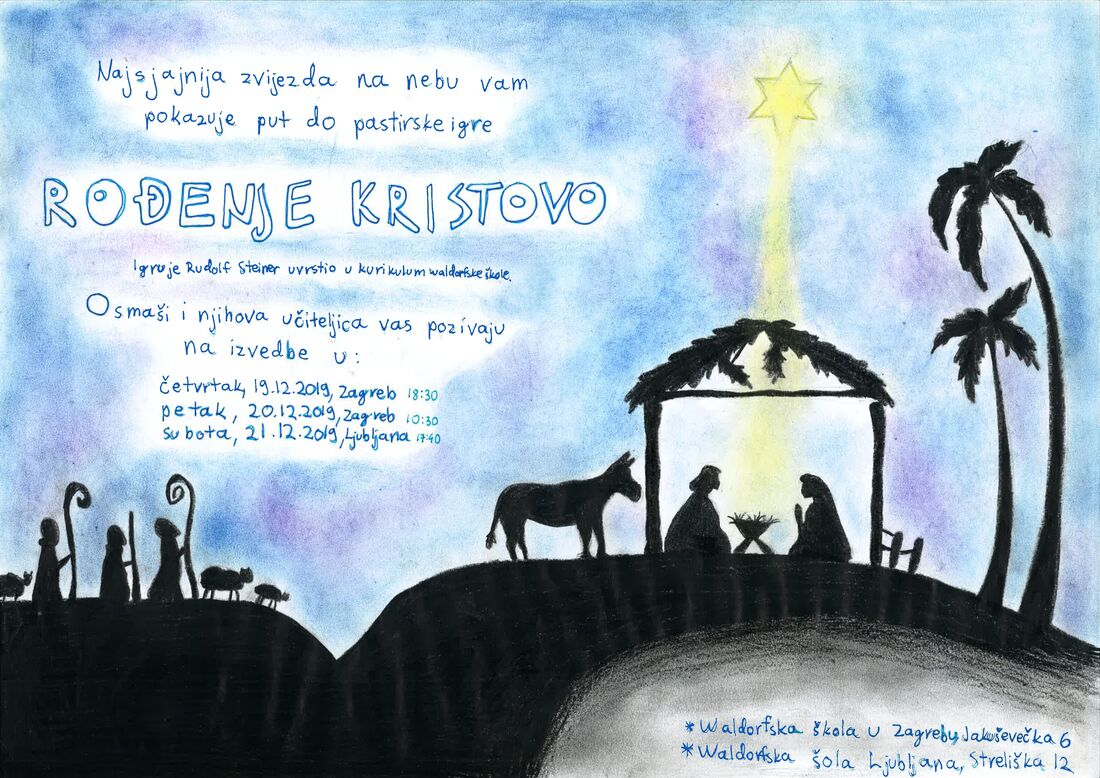 Najsjajnija zvijezda na nebu vam
pokazuje put do pastirske igre
ROĐENJE KRISTOVO
Igru je Rudolf Steiner uvrstio u kurikulum waldorfske škole.
Osmaši i njihova učiteljica vas pozivaju
na izvedbe u:
četvrtak, 19.12.2019, Zagreb 18:30
petak, 20.12.2019, Zagreb 10:30
subota, 21.12.2019, Ljubljana 17:40
*Waldorfska škola u Zagrebu, Jakuševečka 6
*Waldorfska šola Ljubljana, Streliška 12